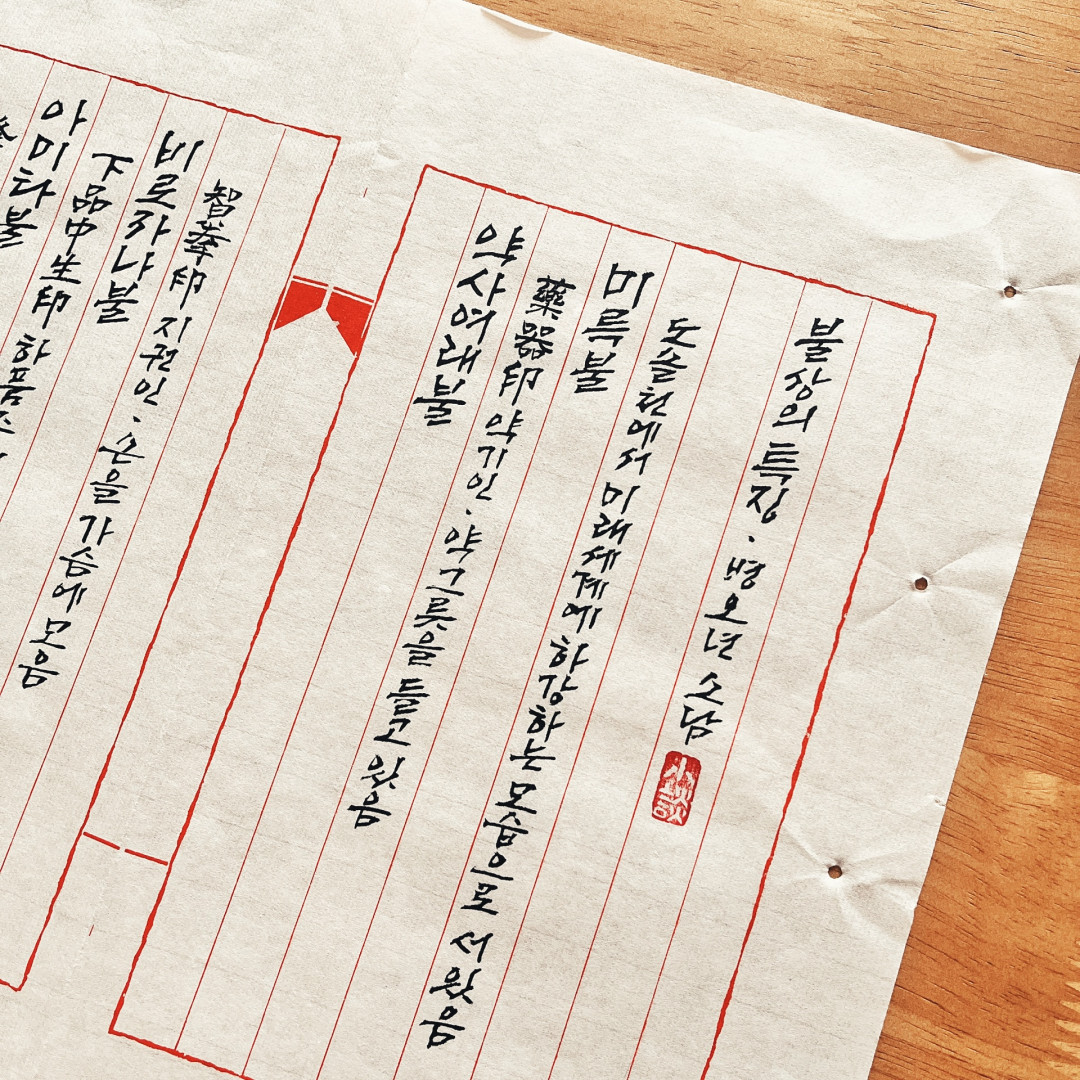 불상의 특징. 병오년 소담
도솔천에서 미래세계에 하강하는 모습으로 서 있음
미륵불
藥器印 약기인. 약그릇을 들고 있음
약사여래불
智拳印 지권인. 손을 가슴에 모음
비로자나불
下品中生印 하품
아미타불